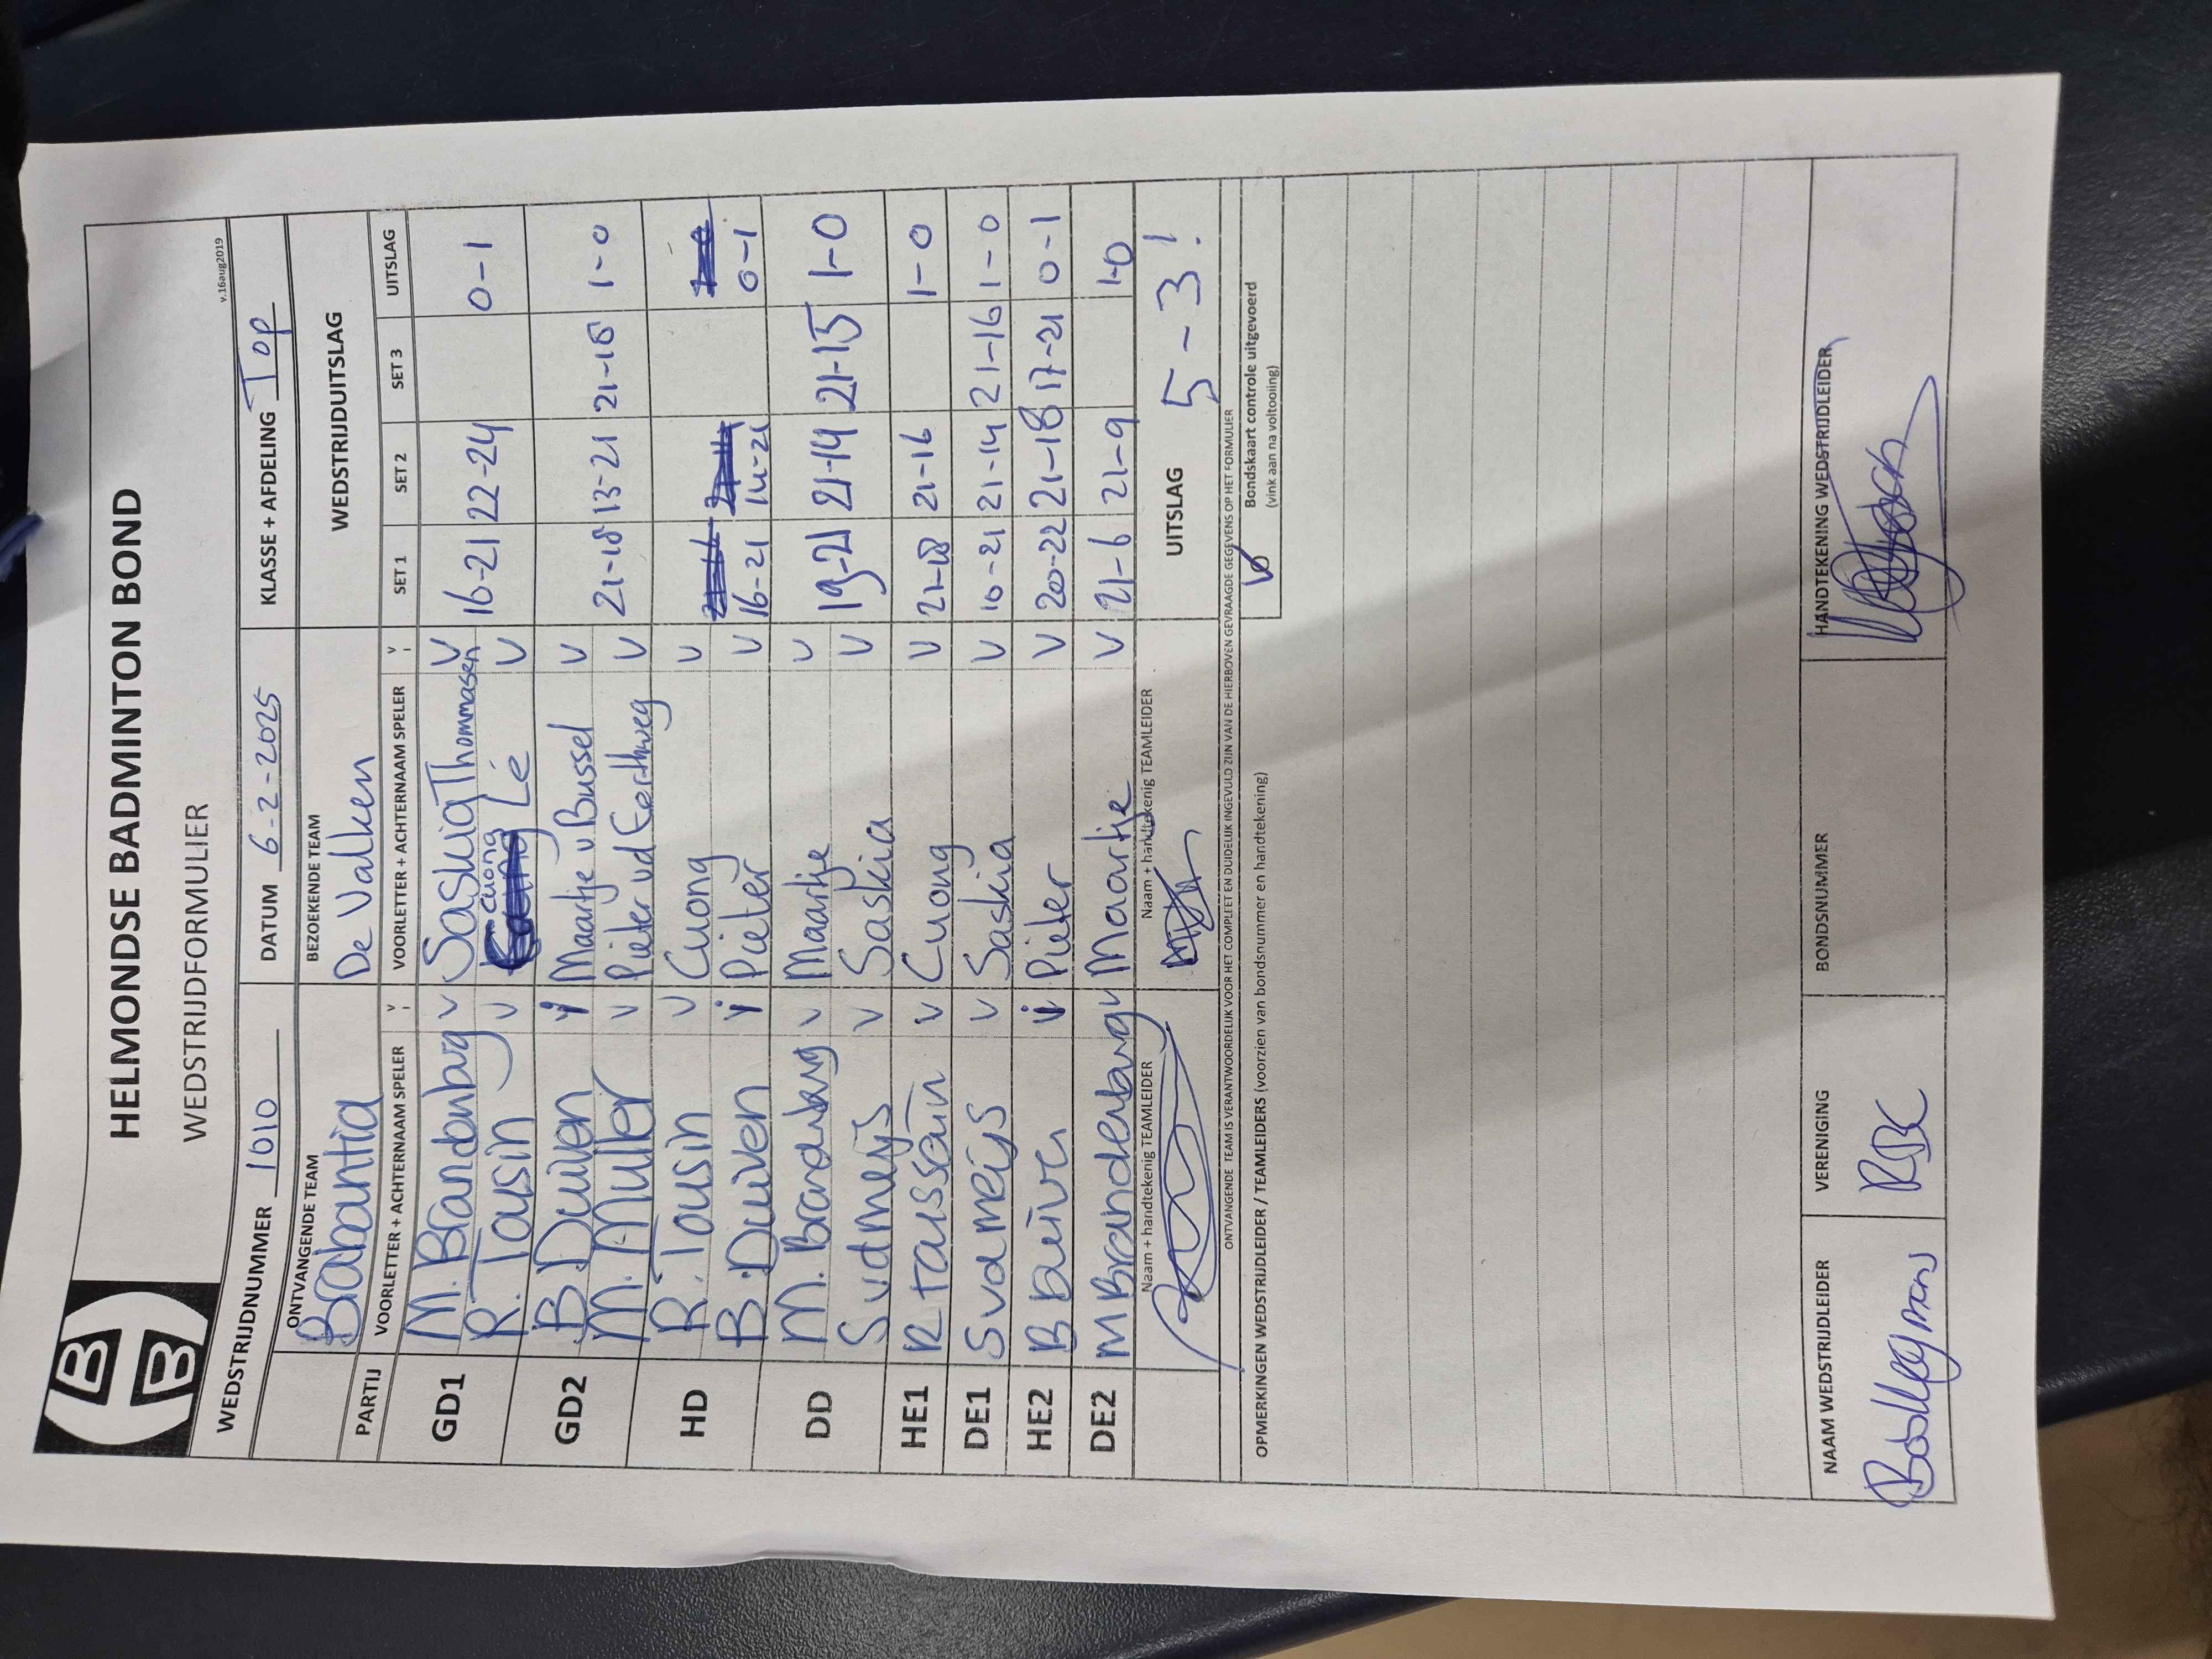 HELMONDSE BADMINTON BOND
WEDSTRIJDFORMULIER
v.16aug2019
WEDSTRIJDNUMMER 1010 DATUM 6-2-2025 KLASSE + AFDELING Top
ONTVANGENDE TEAM BEZOEKENDE TEAM WEDSTRIJDUITSLAG
Brabantia De Valken
PARTIJ VOORLETTER + ACHTERNAAM SPELER V VOORLETTER + ACHTERNAAM SPELER V SET 1 SET 2 SET 3 UITSLAG
GD1 M. Brandenburg v Saskia Thommassen V 16-21 22-24 0-1
R. Tousin v Cuong Lé V
GD2 B. Duiven v Maartje v Bussel V
M. Muller v Pieter vd Eerthweg V 21-18 13-21 21-18 1-0
HD R. Tousin v Cuong V
B. Duiven v Pieter V 16-21 14-21 0-1
DD M. Brandenburg v Maartje V
S vd meijs v Saskia V 19-21 21-14 21-15 1-0
HE1 R v Cuong V 21-18 21-16 1-0
DE1 S vd meijs v Saskia V 10-21 21-14 21-16 1-0
HE2 B v Pieter V 20-22 21-18 17-21 0-1
DE2 M Brandenburg v Maartje V 21-6 21-9 1-0
Naam + handtekenig TEAMLEIDER Naam + handtekenig TEAMLEIDER UITSLAG 5-3!
ONTVANGENDE TEAM IS VERANTWOORDELIJK VOOR HET COMPLEET EN DUIDELIJK INGEVULD ZIJN VAN DE HIERBOVEN GEVRAAGDE GEGEVENS OP HET FORMULIER
OPMERKINGEN WEDSTRIJDLEIDER / TEAMLEIDERS (voorzien van bondsnummer en handtekening) V Bondskaart controle uitgevoerd
(vink aan na voltooiing)
NAAM WEDSTRIJDLEIDER VERENIGING BONDSNUMMER HANDTEKENING WEDSTRIJDLEIDER
RBC